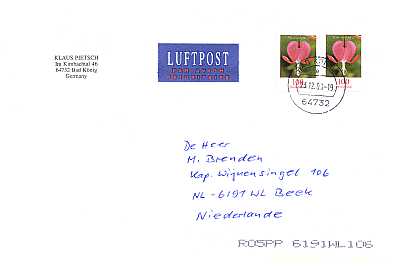 KLAUS PIETSCH
Im Kimbachtal 46
64732 Bad König
Germany
LUFTPOST
PAR AVION
PRIORITAIRE
100
100
64732
De Heer
M. Brenden
Kap. Wijnensingel 106
NL-6191 WL Beek
Niederlande
ROSPP 6191WL106